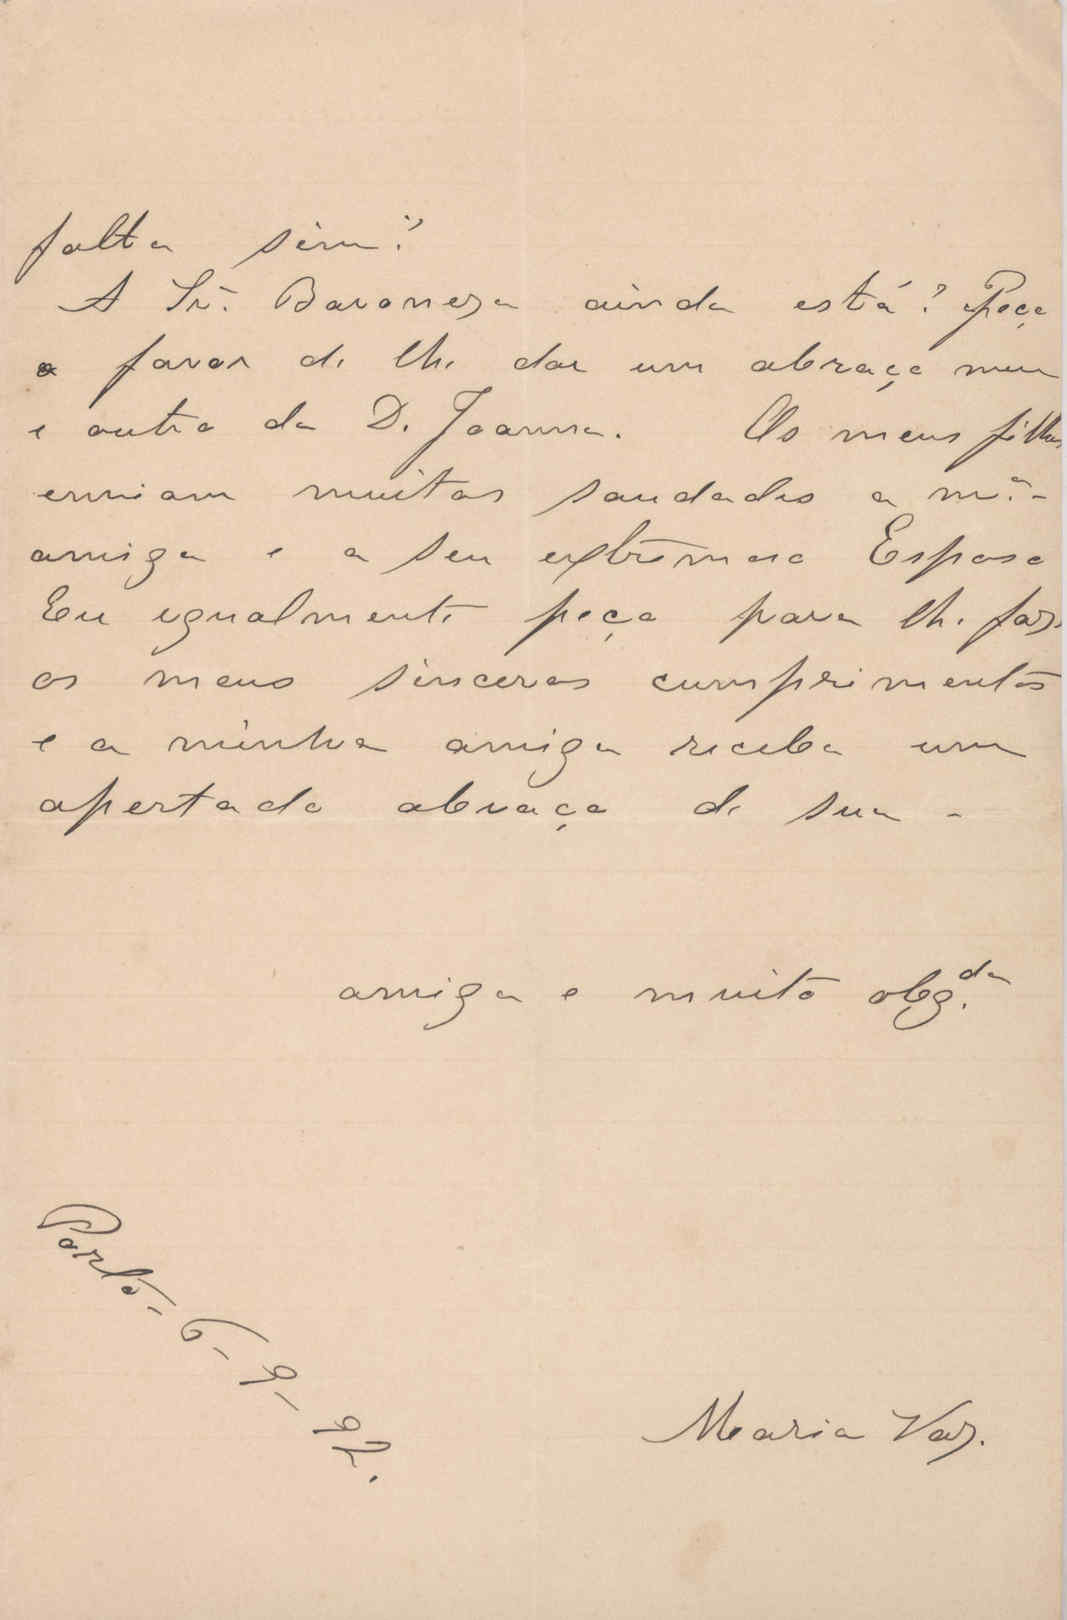 falta sim?
A Sr.ª Baroneza ainda está? Peço
o favor de lhe dar um abraço meu
e outro da D. Joanna. Os meus filhos
enviam muitas saudades a m.ª
amiga e a seu extremoso Esposo
Eu egualmente peço para lhe faz.
os meus sinceros cumprimentos
e a minha amiga receba um
apertado abraço de sua -
amiga e muito obg.da
Porto - 6 - 9 - 92.
Maria Vaz.